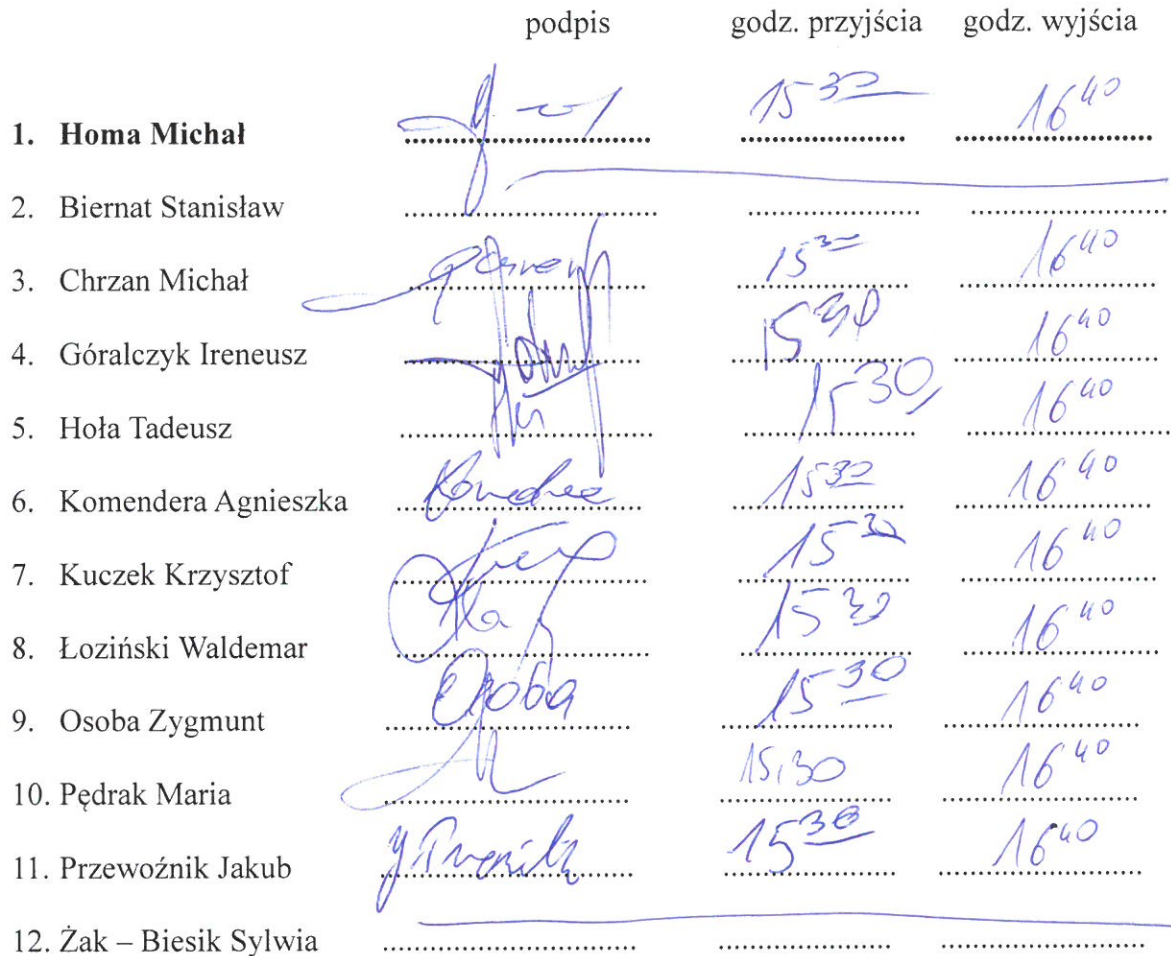 podpis godz. przyjścia godz. wyjścia
1. Homa Michał 15 30 16 40
2. Biernat Stanisław
3. Chrzan Michał 15 30 16 40
4. Góralczyk Ireneusz 15 30 16 40
5. Hoła Tadeusz 15 30 16 40
6. Komendera Agnieszka 15 30 16 40
7. Kuczek Krzysztof 15 30 16 40
8. Łoziński Waldemar 15 30 16 40
9. Osoba Zygmunt Osoba 15 30 16 40
10. Pędrak Maria 15,30 16 40
11. Przewoźnik Jakub 15 30 16 40
12. Żak – Biesik Sylwia